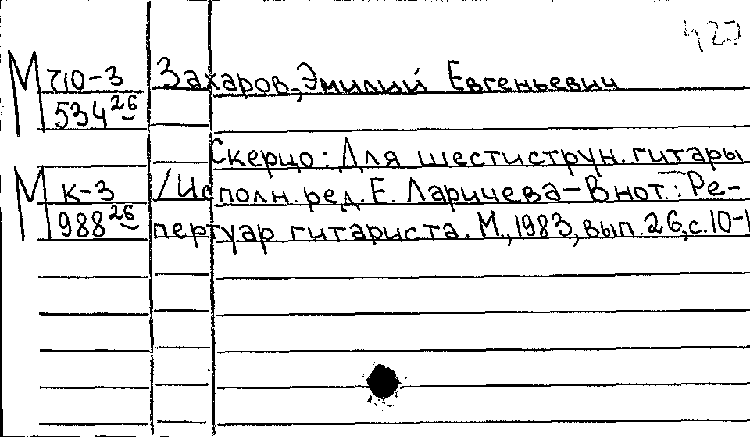 427
М 710-3 Захаров, Эмилий Евгеньевич
534 26
Скерцо: Для шестиструн. гитары
М К-3 /Исполн. ред. Е. Ларичева-В нот.: Ре-
988 26 пертуар гитариста. М., 1983, вып. 26, с. 10-1